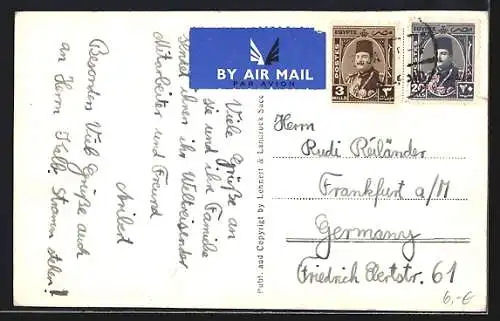 BY AIR MAIL
PAR AVION
EGYPTE
POSTES
3
MILLS
٣
EGYPTE
20
٢٠
Viele Grüße an
sie und ihre Familie
sendet ihnen ihr Weltreisender
Mitarbeiter und Freund
Besonders Viele Grüße auch
an Herrn
Publ. and Copyright by Lehnert & Landrock Succ
Herrn
Rudi Reiländer
Frankfurt a/M
Germany
Friedrich Ebertstr. 61
6,-€